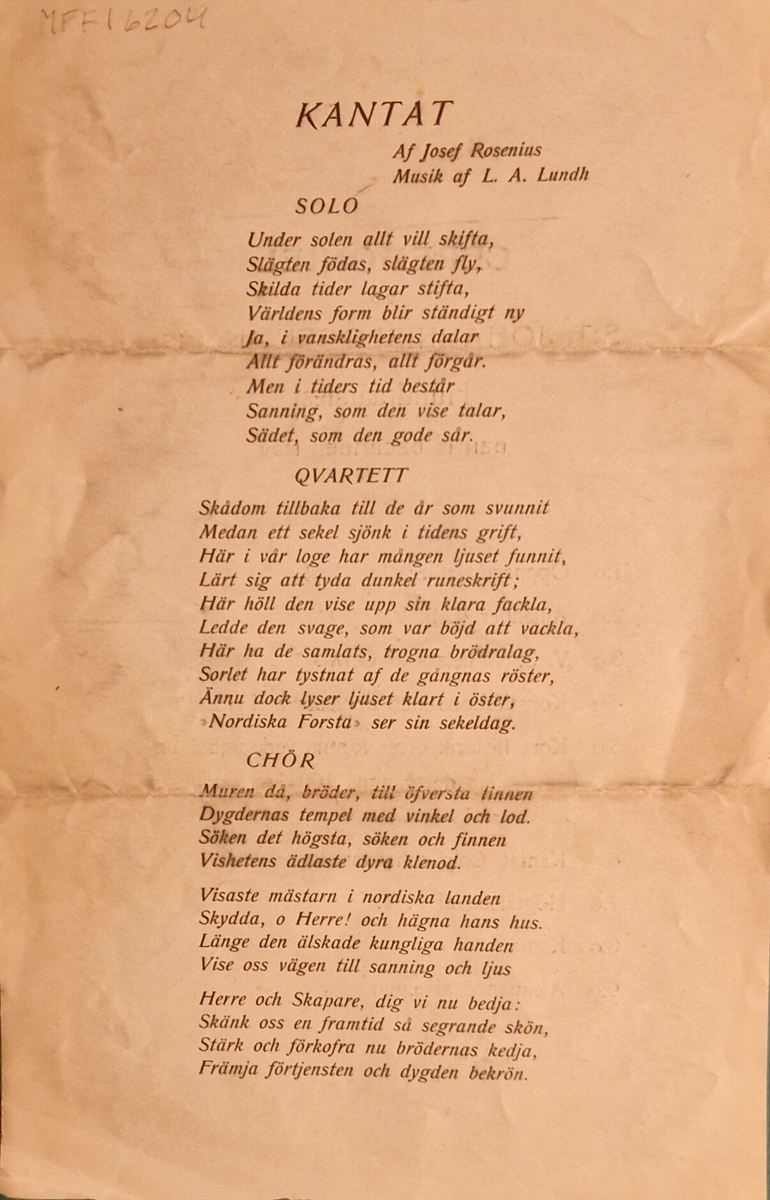 MFF16204
KANTAT
Af Josef Rosenius
Musik af L. A. Lundh
SOLO
Under solen allt vill skifta,
Slägten födas, slägten fly,
Skilda tider lagar stifta,
Världens form blir ständigt ny
Ja, i vansklighetens dalar
Allt förändras, allt förgår.
Men i tiders tid består
Sanning, som den vise talar,
Sädet, som den gode sår.
QVARTETT
Skådom tillbaka till de år som svunnit
Medan ett sekel sjönk i tidens grift,
Här i vår loge har mången ljuset funnit,
Lärt sig att tyda dunkel runeskrift;
Här höll den vise upp sin klara fackla,
Ledde den svage, som var böjd att vackla,
Här ha de samlats, trogna brödralag,
Sorlet har tystnat af de gångnas röster,
Ännu dock lyser ljuset klart i öster,
»Nordiska Forsta» ser sin sekeldag.
CHÖR
Muren då, bröder, till öfversta tinnen
Dygdernas tempel med vinkel och lod.
Söken det högsta, söken och finnen
Vishetens ädlaste dyra klenod.
Visaste mästarn i nordiska landen
Skydda, o Herre! och hägna hans hus.
Länge den älskade kungliga handen
Vise oss vägen till sanning och ljus
Herre och Skapare, dig vi nu bedja:
Skänk oss en framtid så segrande skön,
Stärk och förkofra nu brödernas kedja,
Främja förtjensten och dygden bekrön.